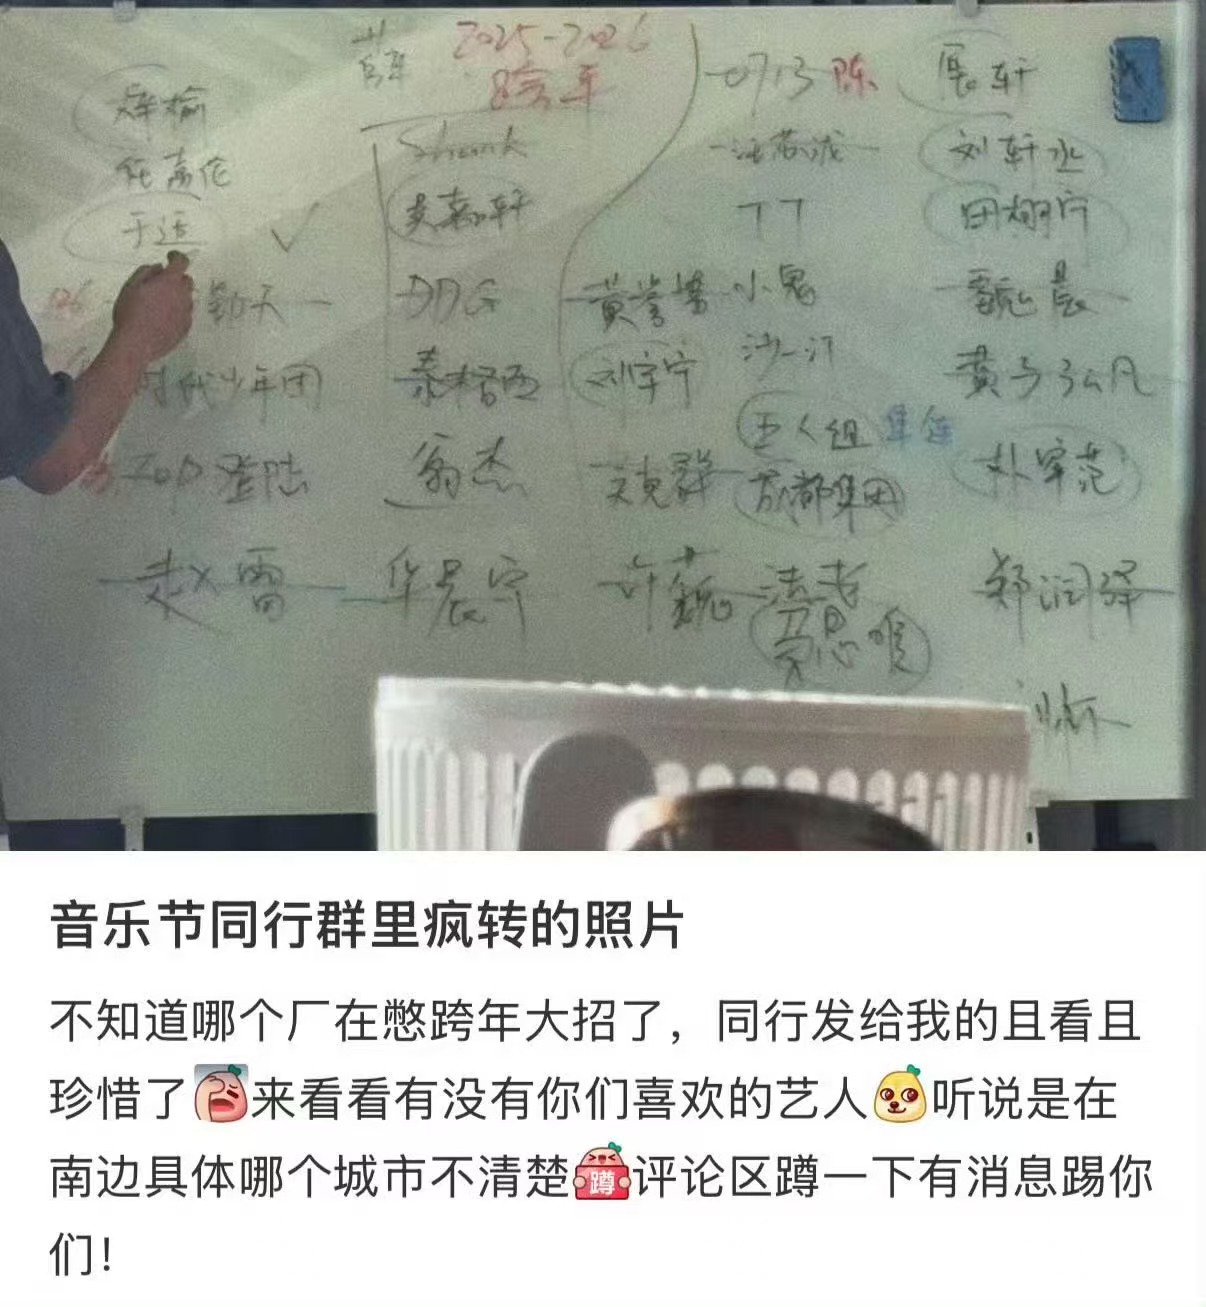 2025-2026
跨年
0713 陈
展轩
檀健次
刘轩丞
汪苏泷
于适
丁丁
田栩宁
DDG
黄誉博
小鬼
魏晨
沙一汀
时代少年团
秦格西
刘宇宁
黄子弘凡
五人组
翁杰
艾克群
成都集团
朴宰范
TOP登陆
赵雷
华晨宇
许巍
法老
郑润泽
音乐节同行群里疯转的照片
不知道哪个厂在憋跨年大招了，同行发给我的且看且
珍惜了来看看有没有你们喜欢的艺人听说是在
南边具体哪个城市不清楚蹲评论区蹲一下有消息踢你
们！